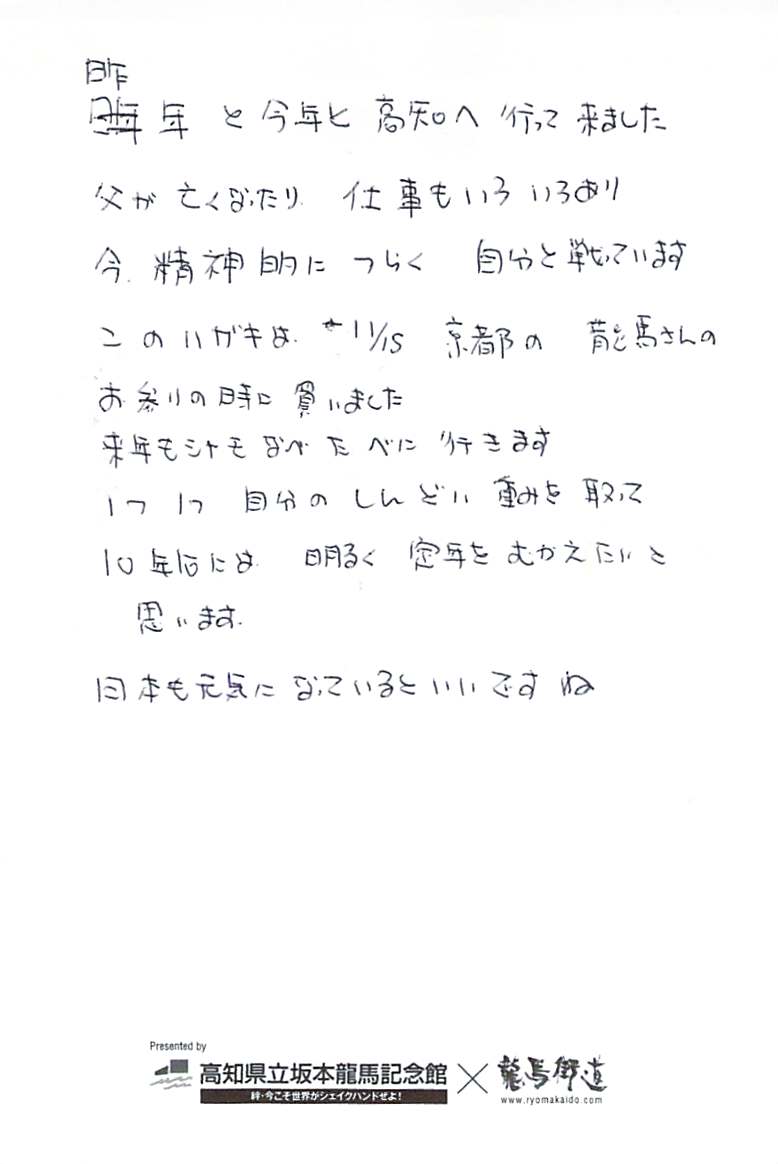 昨
年 と 今年と 高知へ 行って 来ました
父が 亡くなったり 仕事もいろいろあり
今 精神的に つらく 自分と戦っています
このハガキは 11/15 京都の 龍馬さんの
お参りの時に 買いました
来年もシャモなべたべに行きます
1つ1つ 自分のしんどい 重みを 取って
10年后には 明るく 定年を むかえたいと
思います。
日本も元気に なっているといいですね
Presented by
高知県立坂本龍馬記念館 × 龍馬街道
絆・今こそ世界がシェイクハンドぜよ! www.ryomakaido.com